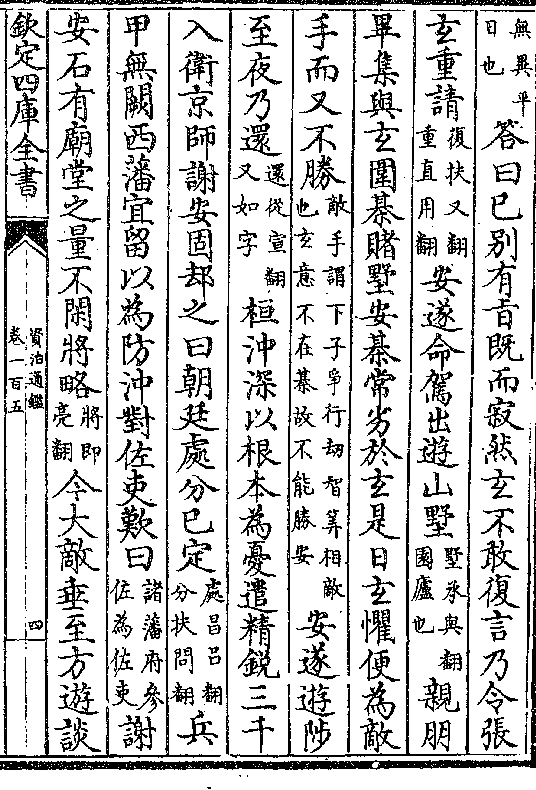 無異平日也答曰已別有旨既而寂然玄不敢復言乃令張
玄重請復扶又翻重直用翻安遂命駕出遊山墅墅承與翻園廬也親朋
畢集與玄圍棊賭墅安棊常劣於玄是日玄懼便為敵
手而又不勝敵手謂下子爭行劫智筭相敵也玄意不在棊故不能勝安安遂遊陟
至夜乃還還從宣翻又如字桓沖深以根本為憂遣精鋭三千
入衛京師謝安固却之曰朝廷處分已定處昌呂翻分扶問翻兵
甲無闕西藩宜留以為防沖對佐吏歎曰諸藩府參佐為佐吏謝
安石有廟堂之量不閑將略將即亮翻今大敵垂至方遊談
欽定四庫全書
資治通鑑
卷一百五
四